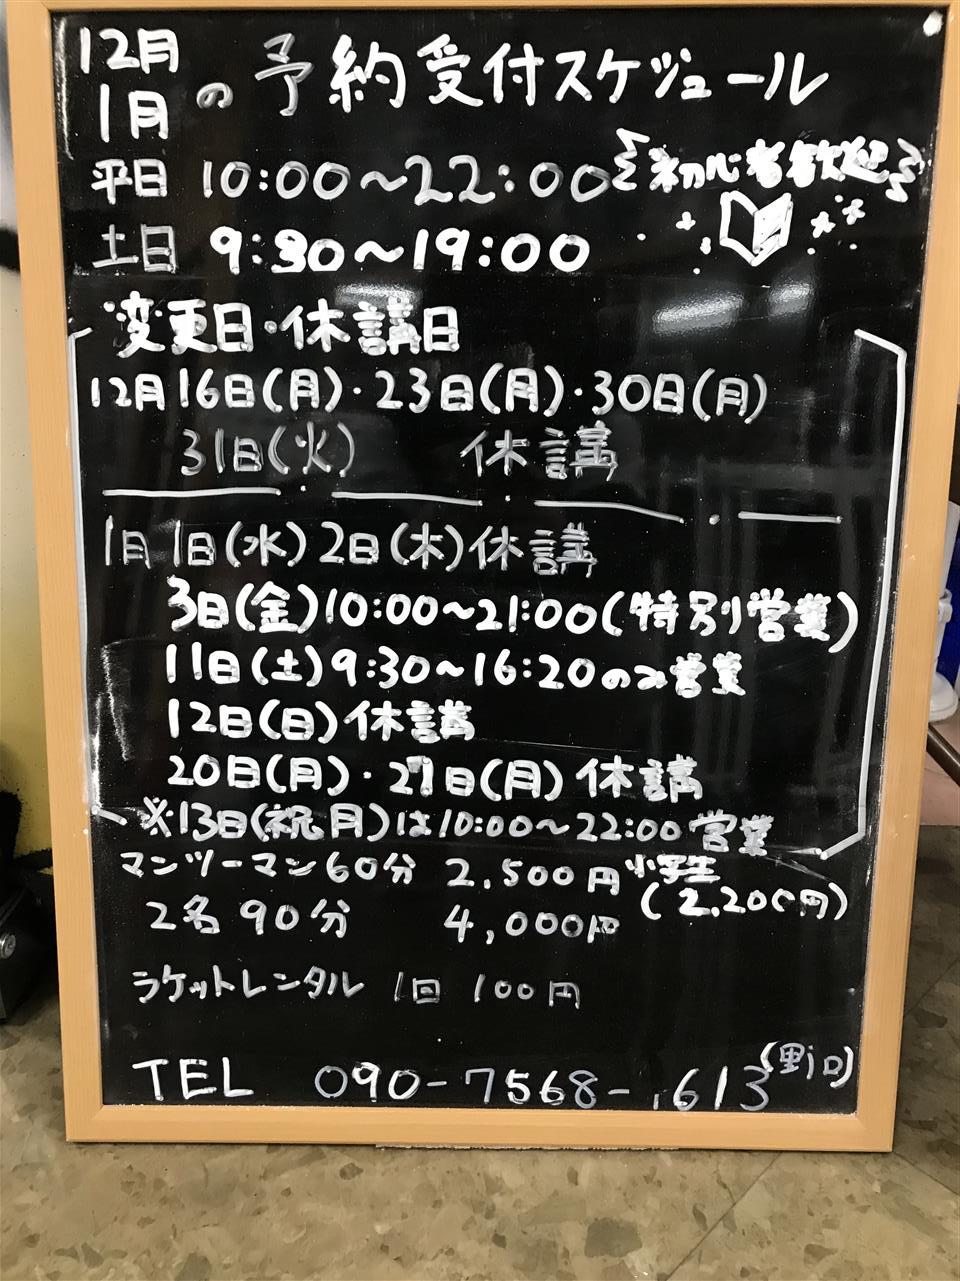 12月
1月
の予約受付スケジュール
平日 10:00~22:00
初心者歓迎
土日 9:30~19:00
変更日・休講日
12月16日(月)・23日(月)・30日(月)
31日(火) 休講
1月1日(水)2日(木)休講
3日(金)10:00~21:00(特別営業)
11日(土)9:30~16:20のみ営業
12日(日)休講
20日(月)・27日(月)休講
※13日(祝月)は10:00~22:00営業
マンツーマン60分 2,500円 小学生
(2,200円)
2名90分 4,000円
ラケットレンタル 1回 100円
(野口)
TEL 090-7568-1613